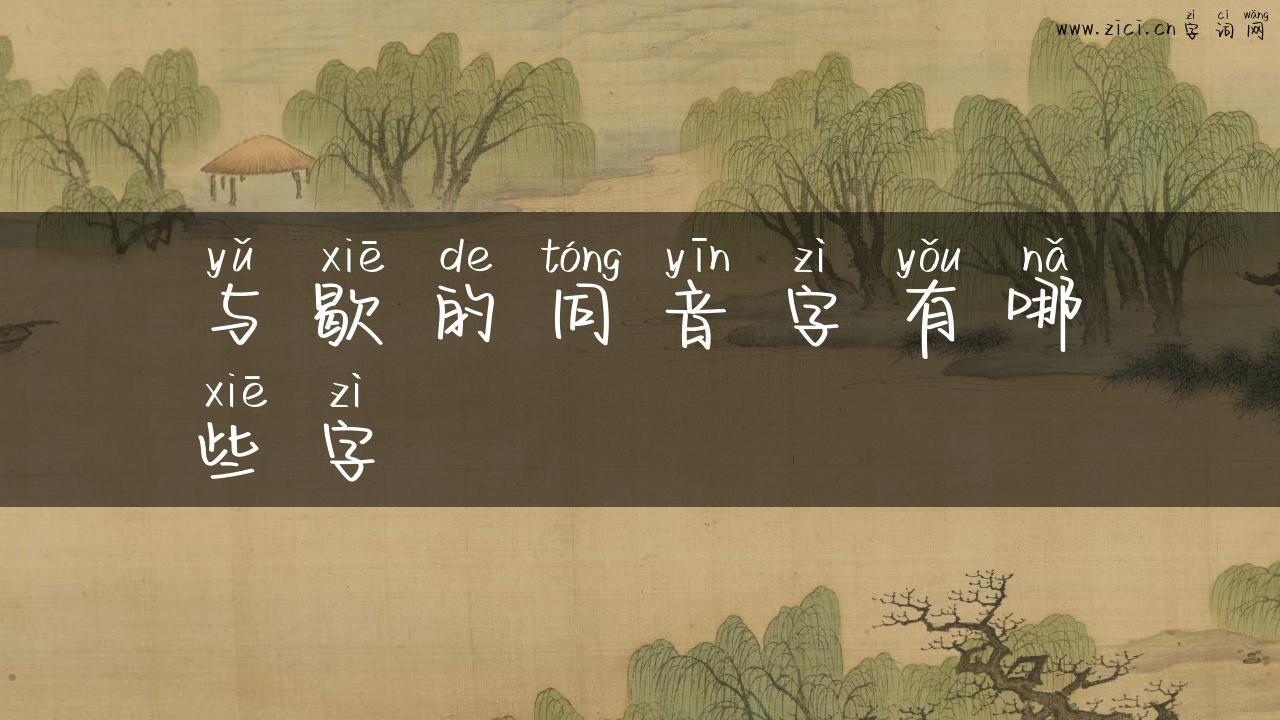 zì cí wǎng
www.zici.cn 字词网
yǔ xiē de tóng yīn zì yǒu nǎ
与歇的同音字有哪
xiē zì
些字